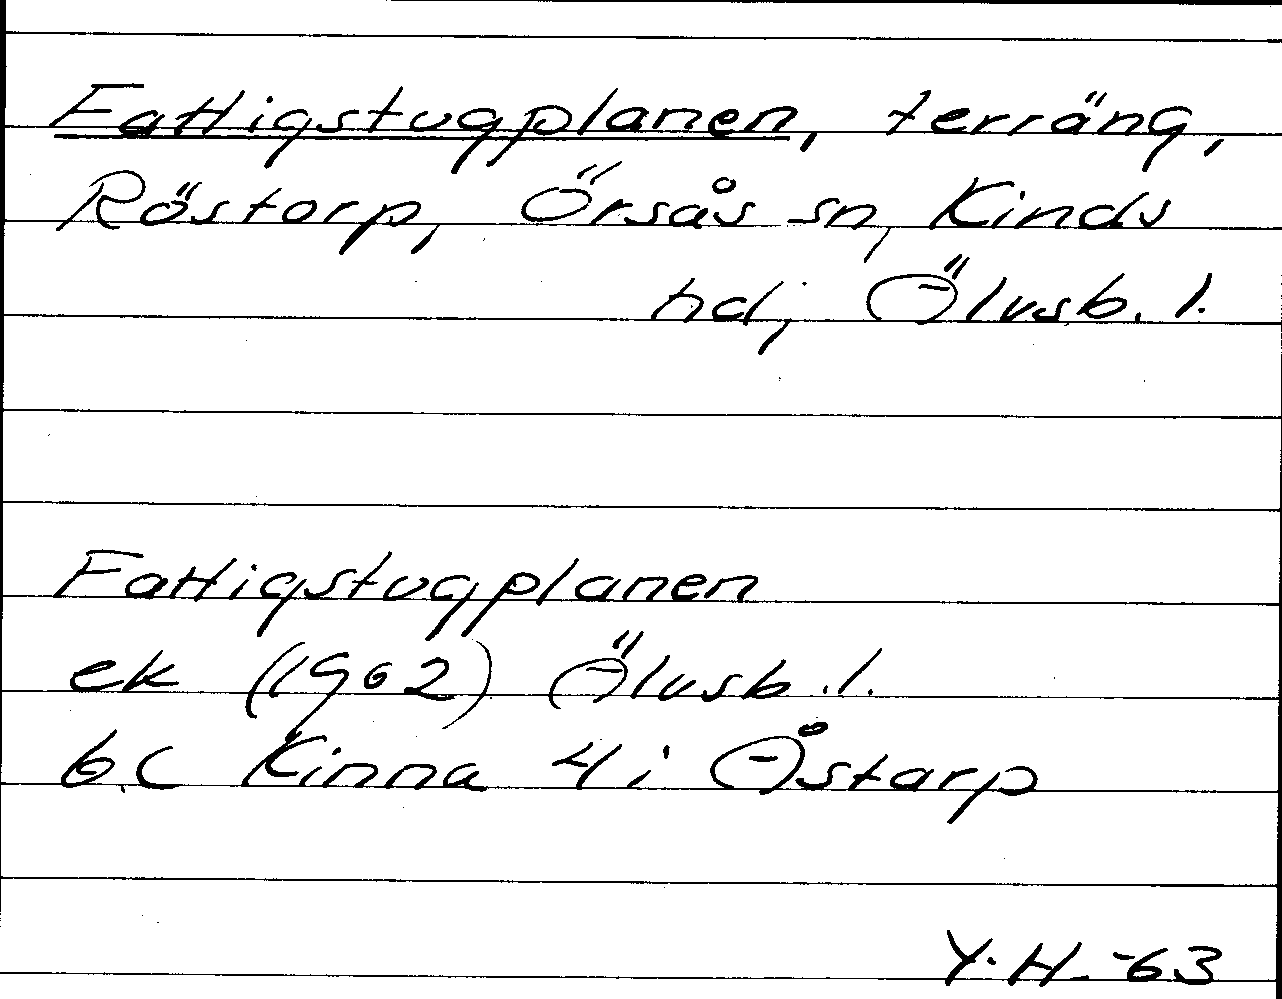 Fattigstugplanen, terräng,
Röstorp, Örsås sn, Kinds
hd, Älvsb. l.
Fattigstugplanen
ek (1962) Älvsb. l.
6C Kinna 4i Åstarp
Y.H. -63